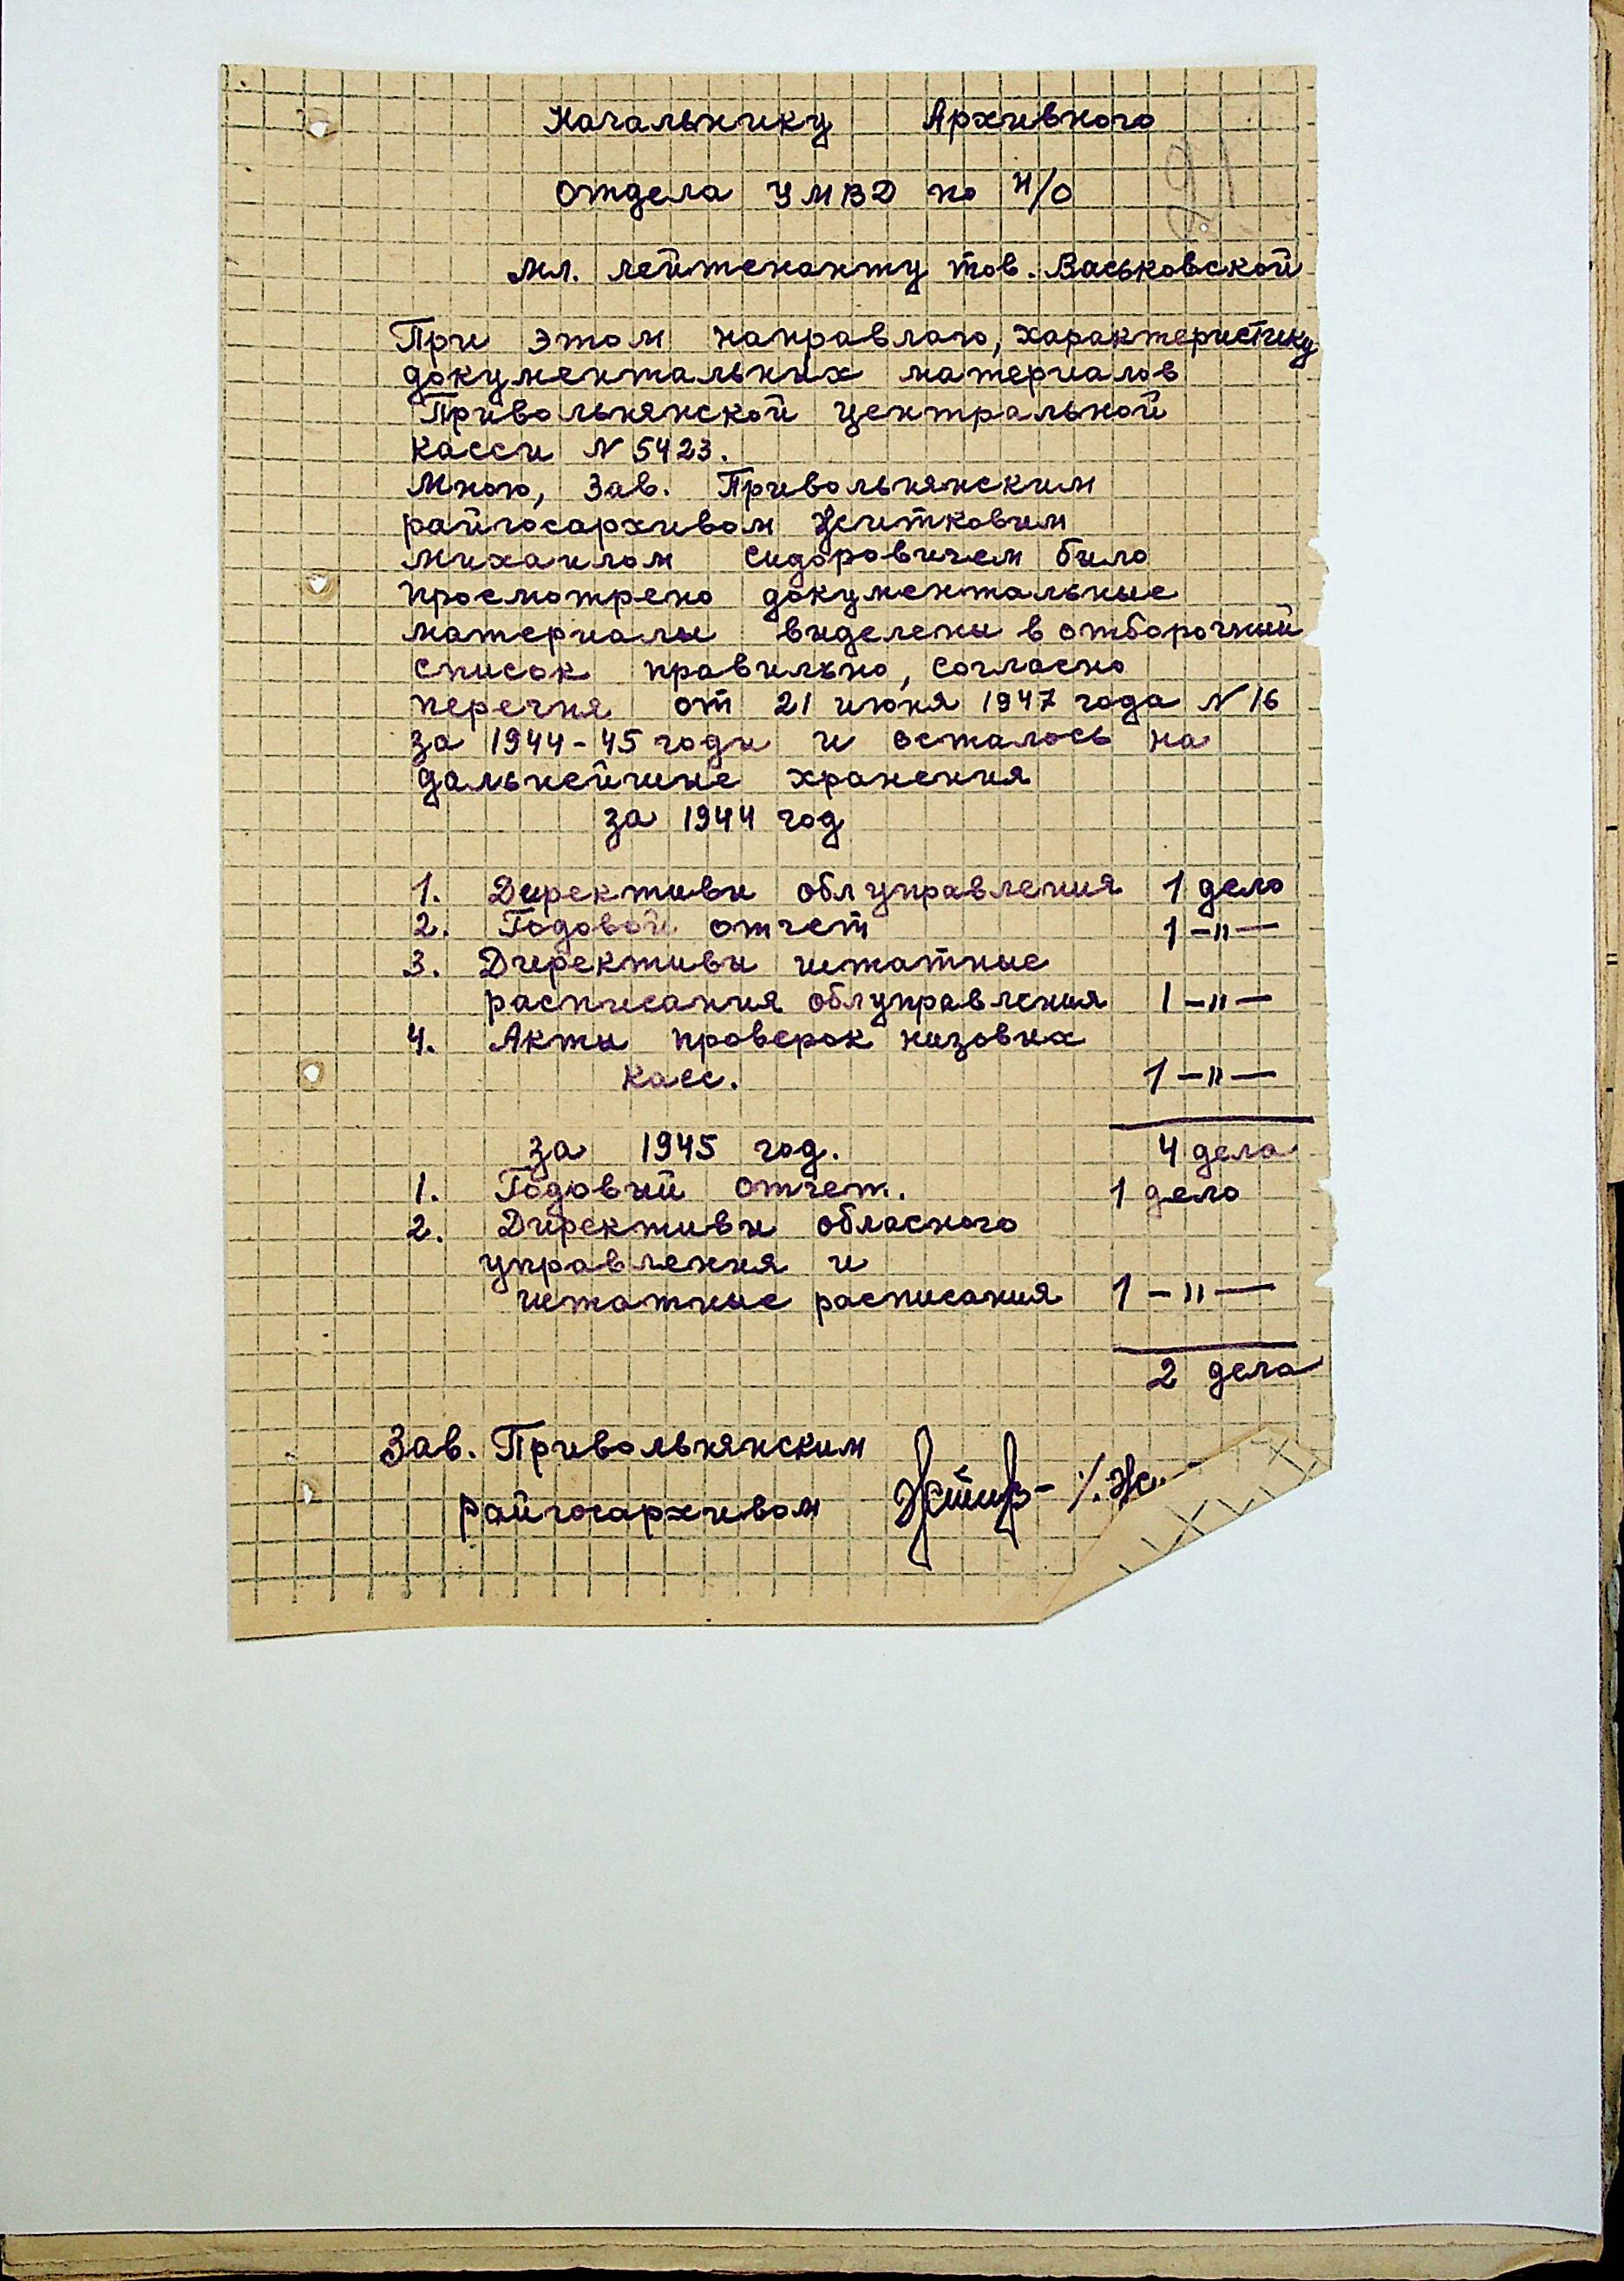 Начальнику Архивного
отдела УМВД по Н/О
мл. лейтенанту тов. Васьковской
При этом направлаю, характеристику
документальных материалов
Привольнянской центральной
касси N 5423.
Мною, Зав. Привольнянским
райгосархивом Житковим
Михаилом Сидоровичем било
просмотрено документальные
материалы виделени в отборочний
список правильно, согласно
перечня от 21 июня 1947 года N 16
за 1944-45 годи и осталось на
дальнейшие хранения
за 1944 год
1. Директиви облуправления 1 дело
2. Годовой отчет 1 -"-
3. Директиви штатные
расписания облуправления 1 -"-
4. Акты проверок низових
касс. 1 -"-
за 1945 год. 4 дела
1. Годовий отчет. 1 дело
2. Директиви обласного
управления и
штатные расписания 1 -"-
2 дела
Зав. Привольнянским
райгосархивом